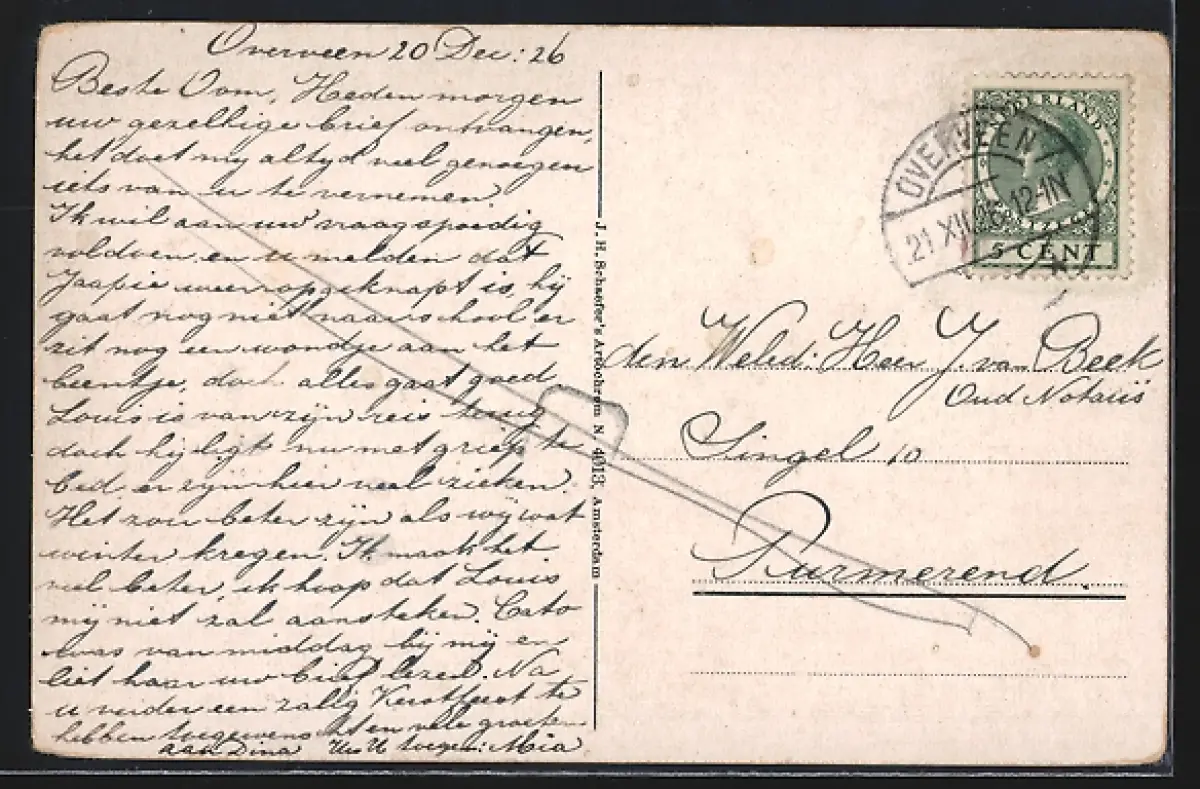 Overveen 20 Dec: 26
Beste Oom, Heden morgen
uw gezellige brief ontvangen,
het doet my altyd veel genoegen
iets van u te vernemen.
Ik wil aan uw vraag spoedig
voldoen en u melden dat
Jaapie weer opgeknapt is, hij
gaat nog niet naar school er
zit nog een wondje aan het
beentje, doch alles gaat goed
Louis is van zijn reis terug
doch hij ligt nu met griep te
bed, er zijn hier veel zieken.
Het zou beter zijn als wij wat
winter kregen. Ik maak het
veel beter, ik hoop dat Louis
mij niet zal aansteken. Cato
was van middag bij mij en
liet haar uw brief lezen. Na
u verder een zalig Kerstfeest te
hebben toegewenscht en vele groeten
aan Dina Uw toegen: Mia
J. H. Schaefer's Artochrom N 4013, Amsterdam
NEDERLAND
5 CENT
OVERVEEN
21 XII 26 12-1N
den Weled: Heer J. van Beek
Oud Notaris
Singel 10
Purmerend.